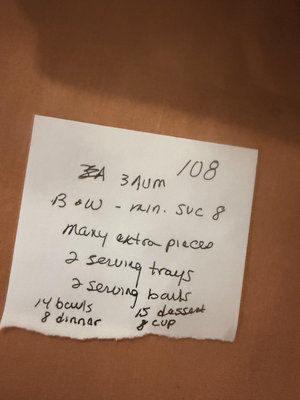 108
3AUM
B & W - min. SVC 8
many extra pieces
2 serving trays
2 serving bowls
14 bowls 15 dessert
8 dinner 8 cup